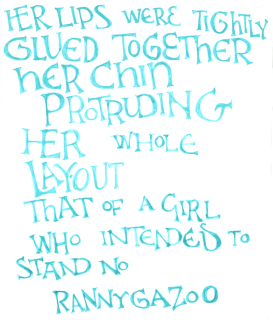 HER LIPS WERE TIGHTLY
GLUED TOGETHER
HER CHIN
PROTRUDING
HER WHOLE
LAYOUT
THAT OF A GIRL
WHO INTENDED TO
STAND NO
RANNYGAZOO